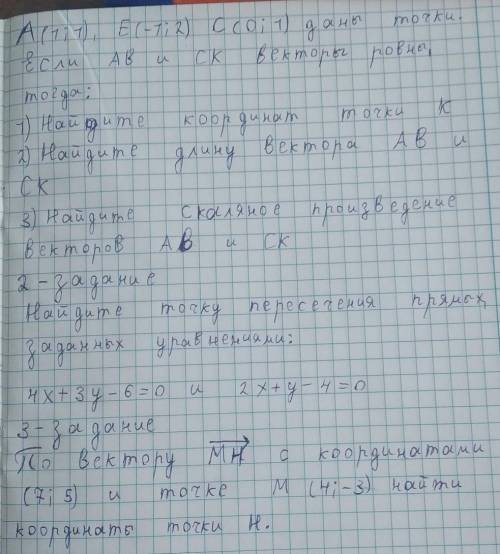 А(1;1), Е(-1;2) С(0;1) даны точки.
Если АВ и СК векторы ровны,
тогда:
1) Найдите координат точки К
2) Найдите длину вектора АВ и
СК
3) Найдите скаляное произведение
векторов АВ и СК
2-задание
Найдите точку пересечения прямых,
заданных уравнениями:
4x+3y-6=0 и 2x+y-4=0
3-задание
По вектору MH с координатами
(7;5) и точке М (4;-3) найти
координаты точки Н.